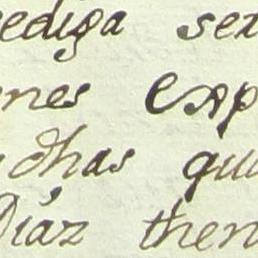 ediga sex
nes exp
dhas qu
Díaz then